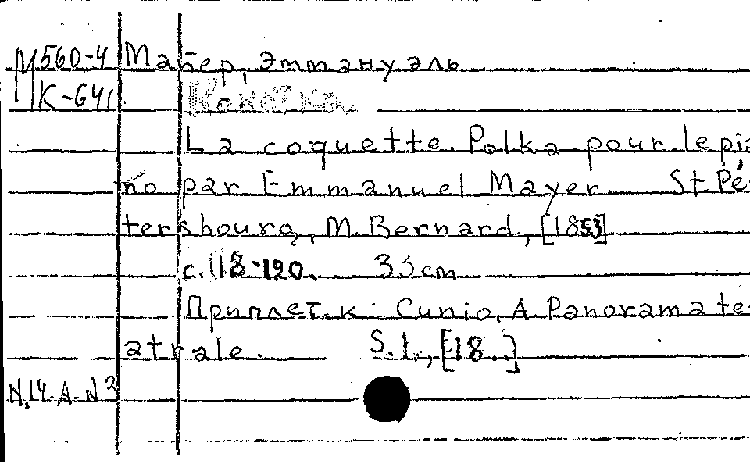 М560-4 Маŭер, Эммануэль
К-641 Кокетка.
La coquette. Polka pour le pia
no par Emmanuel Mayer St Pé-
tersbourg, M. Bernard, [1853]
с. 118-120. 33 cm
Приплет. к: Cunio, A. Panorama te-
atrale. S.l., [18..]